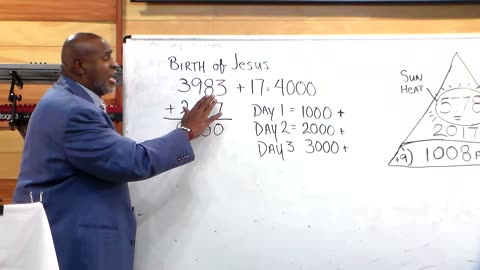 BIRTH OF JESUS
3983 + 17 = 4000
DAY 1 = 1000 +
DAY 2 = 2000 +
DAY 3 3000 +
SUN
HEAT
5778
2017
1008